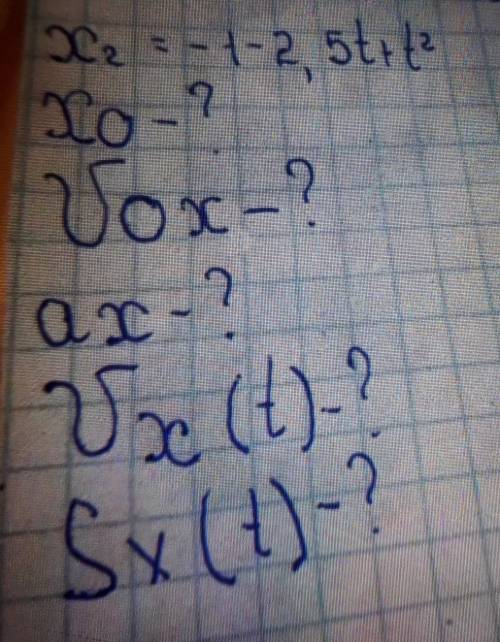 x₂ = -1-2,5t+t²
x0-?
V0x-?
ax-?
Vx(t)-?
Sx(t)-?